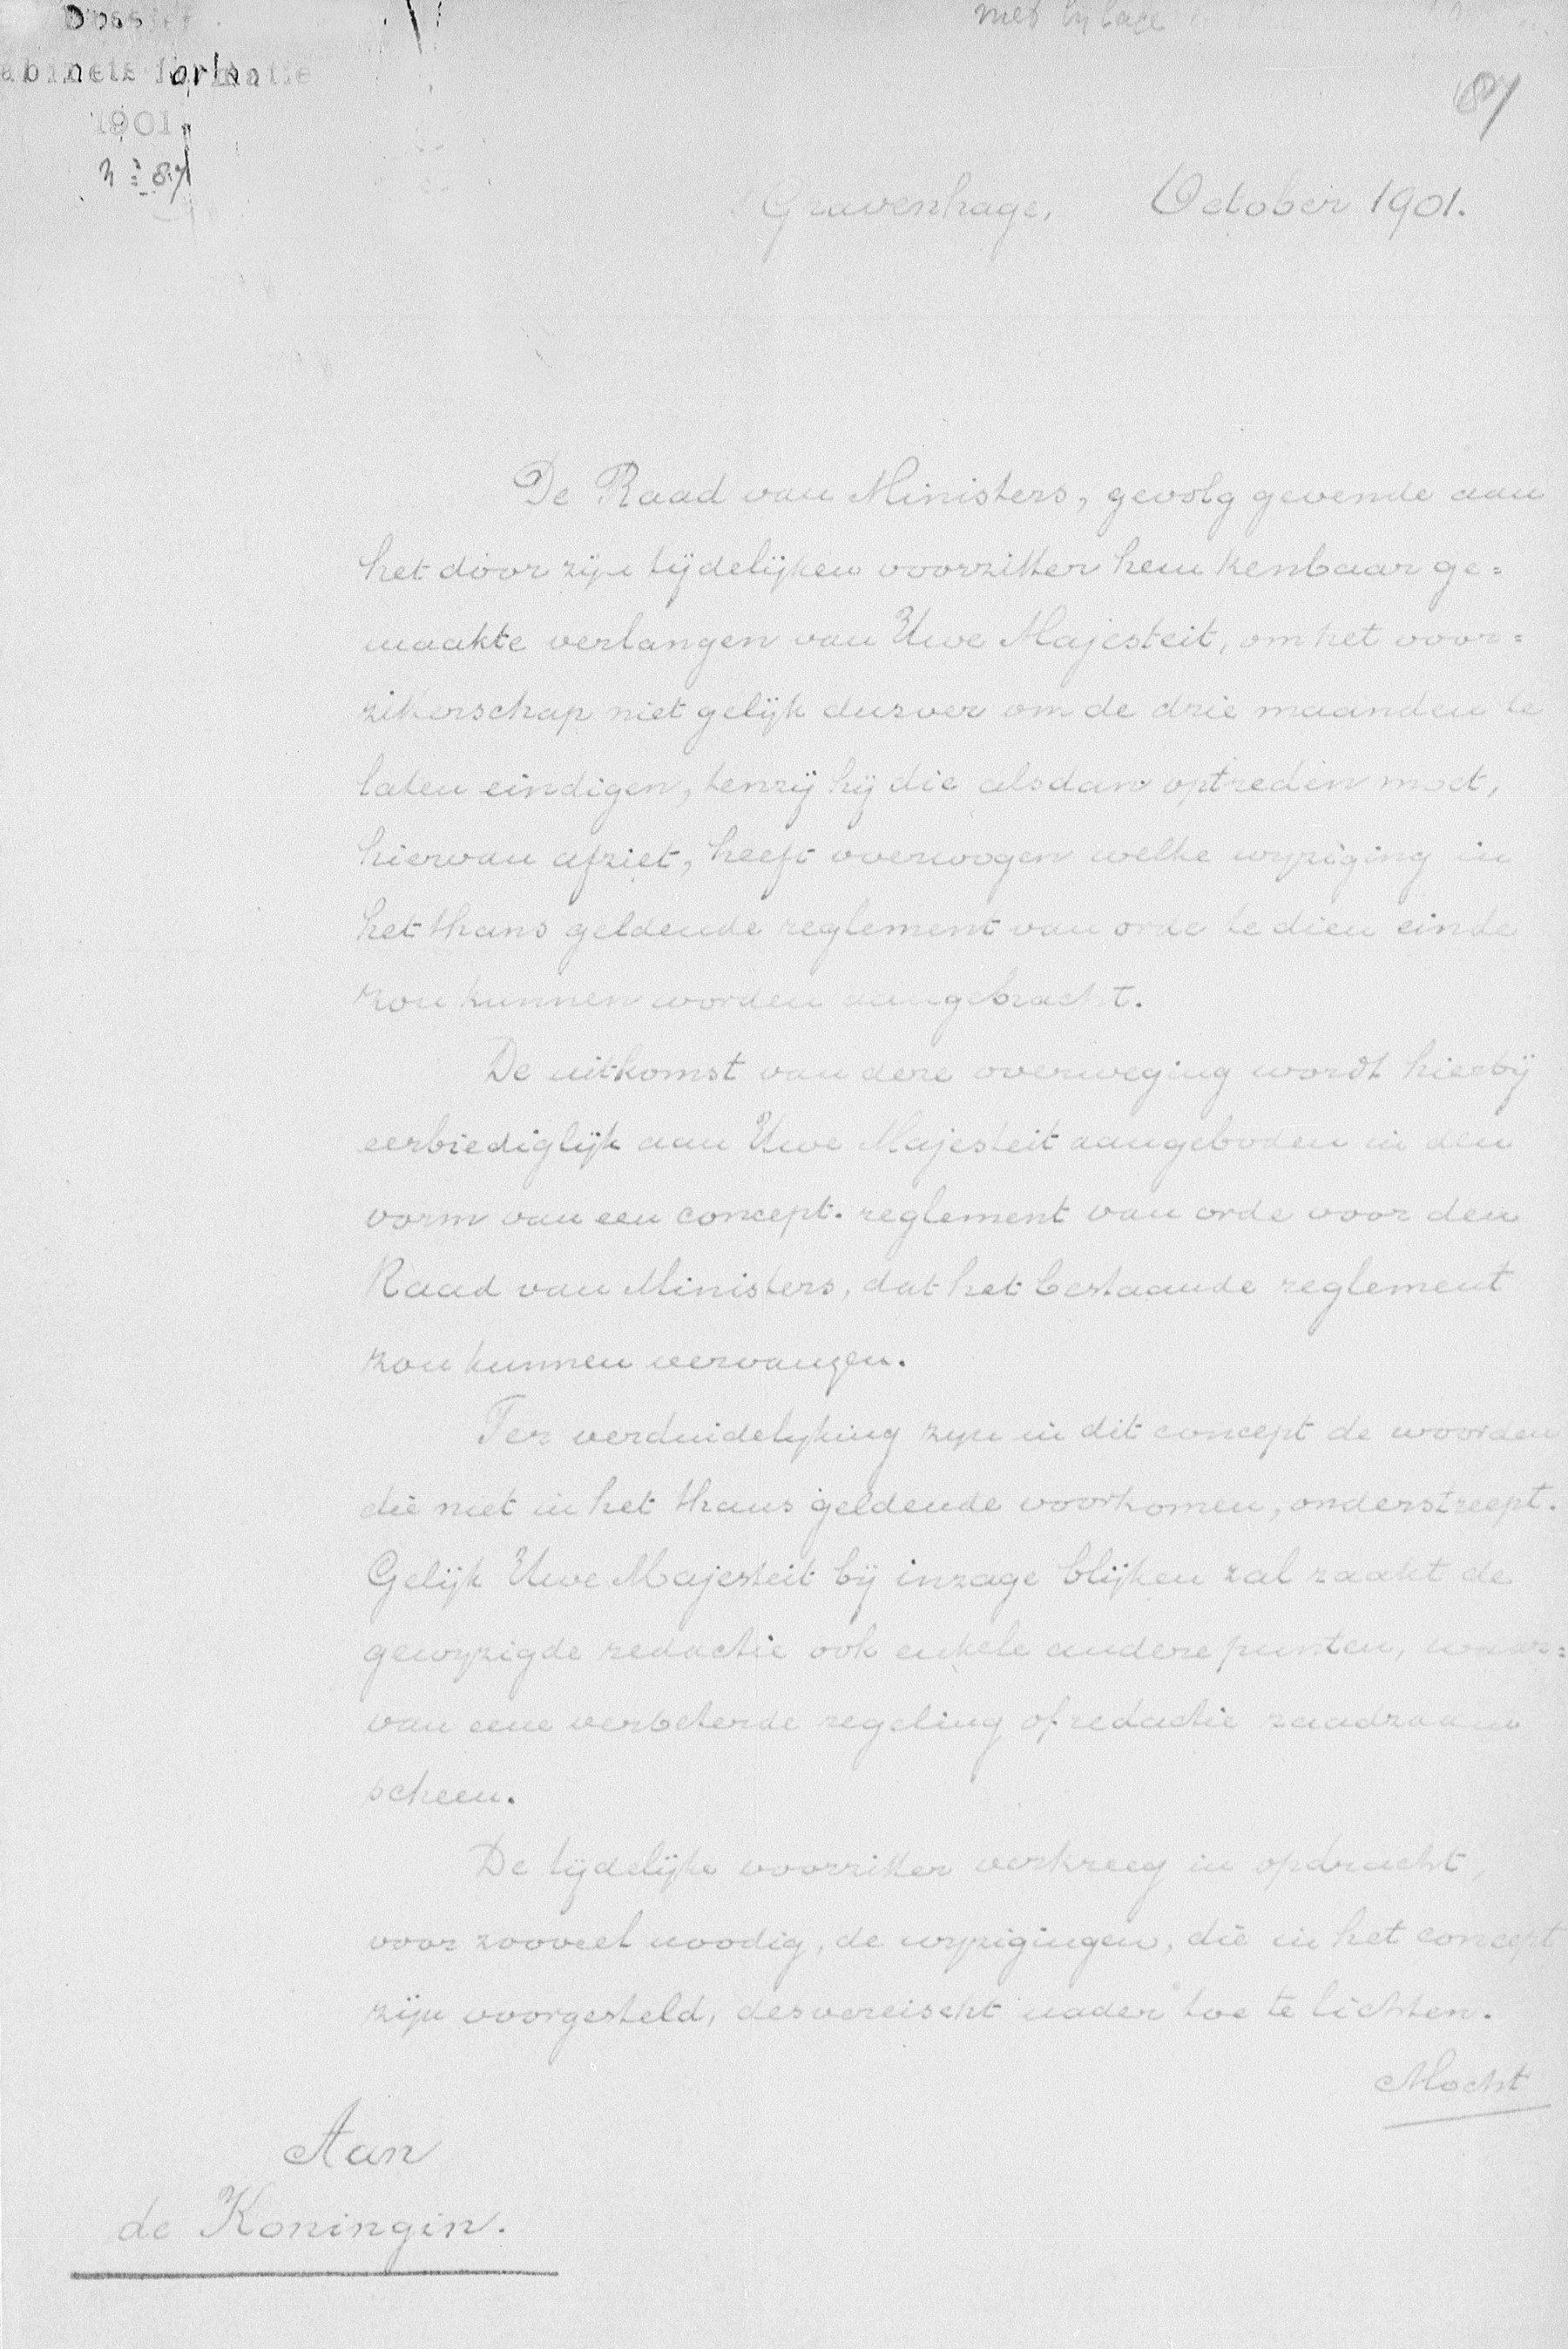 Dossier
abinets formatie
1901.
met bylage
87
nº 87
's Gravenhage, October 1901.
De Raad van Ministers, gevolg gevende aan
het door zijn tijdelijken voorzitter hem kenbaar ge=
maakte verlangen van Uwe Majesteit, om het voor=
zitterschap niet gelijk dusver om de drie maanden te
laten eindigen, tenzij hij die alsdan optreden moet,
hiervan afziet, heeft overwogen welke wijziging in
het thans geldende reglement van orde te dien einde
zou kunnen worden aangebracht.
De uitkomst van deze overweging wordt hierbij
eerbiediglijk aan Uwe Majesteit aangeboden in den
vorm van een concept-reglement van orde voor den
Raad van Ministers, dat het bestaande reglement
zou kunnen vervangen.
Ter verduidelijking zijn in dit concept de woorden
die niet in het thans geldende voorkomen, onderstreept.
Gelijk Uwe Majesteit bij inzage blijken zal raakt de
gewijzigde redactie ook enkele andere punten, waar=
van eene verbeterde regeling of redactie raadzaam
scheen.
De tijdelijke voorzitter verkreeg in opdracht,
voor zooveel noodig, de wijzigingen, die in het concept
zijn voorgesteld, desvereischt nader toe te lichten.
Mocht
Aan
de Koningin.